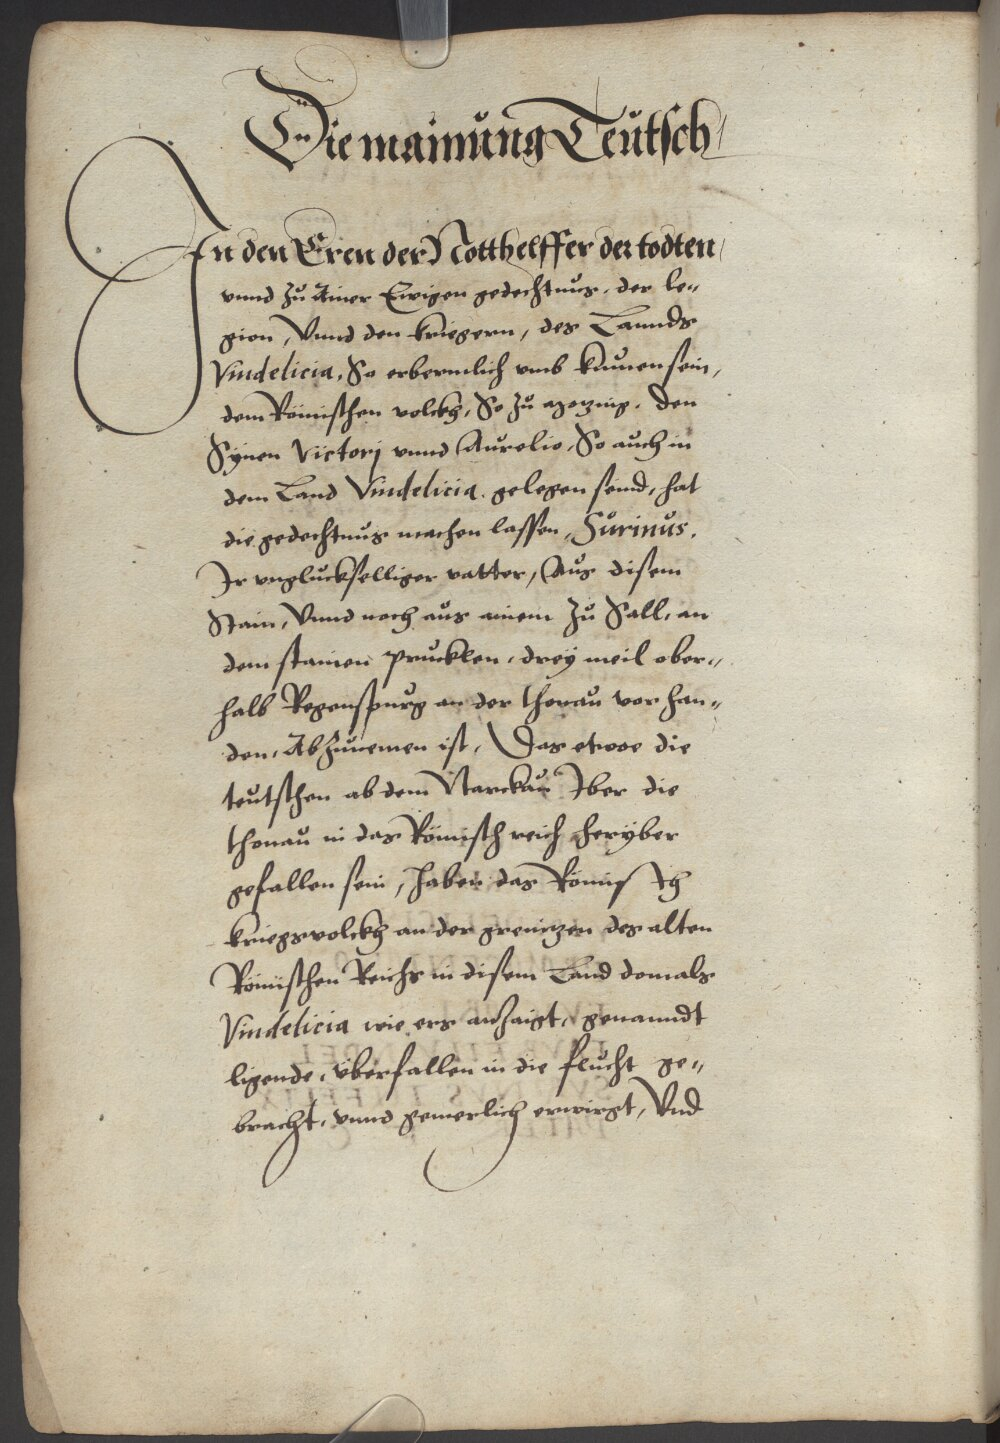 Die mainung Teutsch
In den Eren der Notthelffer der todten
vnnd zu Ainer Ewigen gedechtnus, der le„
gion, Vnnd den kriegern, des Lannds
Vindelicia, So erbermlich vmb kumen sein,
dem Römischen volckh, So zu gezing. Den
Synen Victorj vnnd Aurelio, So auch in
dem Land Vindelicia gelegen seind, hat
die gedechtnus machen lassen, Surinus.
Ir vngluckselliger vatter, Aus disem
Stain, Vnnd noch aus ainem zu Sall, an
dem stainen prucklen, drey meil ober„
halb Regenspurg an der thonau vor han„
den, Abzunemen ist, Das etwoe die
teutschen ab dem Narckau Iber die
thonau in das Römisch reich herÿber
gefallen sein, haben das Römisch
kriegsvolckh an der grenitzen des alten
Römischen Reichs in disem Land domals
Vindelicia wie ers anzaigt, genanndt
ligende, überfallen in die flucht ge„
bracht, vnnd gemerlich erwirgt, Vnd